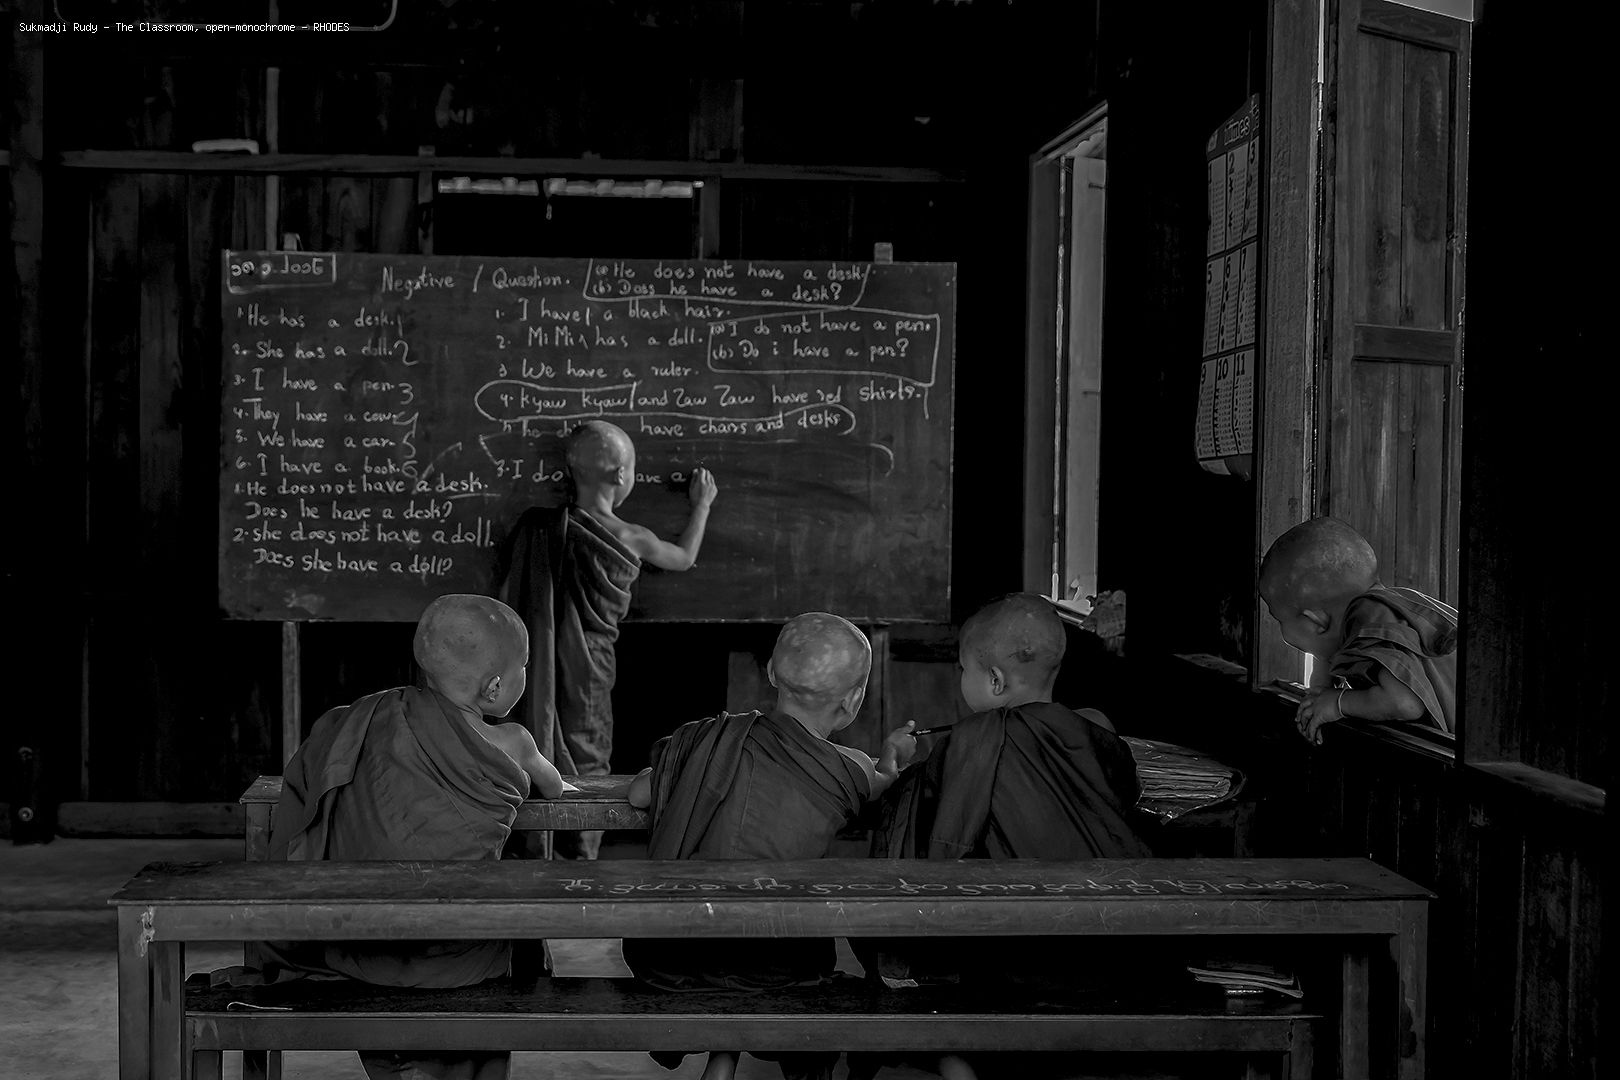 Sukmadji Rudy - The Classroom, open-monochrome - RHODES
Negative / Question.
(a) He does not have a desk.
(b) Does he have a desk?
1. He has a desk. 1
2. She has a doll. 2
3. I have a pen. 3
4. They have a cow. 4
5. We have a car. 5
6. I have a book. 6
1. He does not have a desk.
Does he have a desk?
2. She does not have a doll.
Does she have a doll?
1. I have / a black hair.
2. Mi Mi has a doll.
3 We have a ruler.
4. Kyaw Kyaw / and Zaw Zaw have red shirts.
have chairs and desks
(a) I do not have a pen.
(b) Do i have a pen?
3. I do ave a
Times
2 3
5 6 7
9 10 11